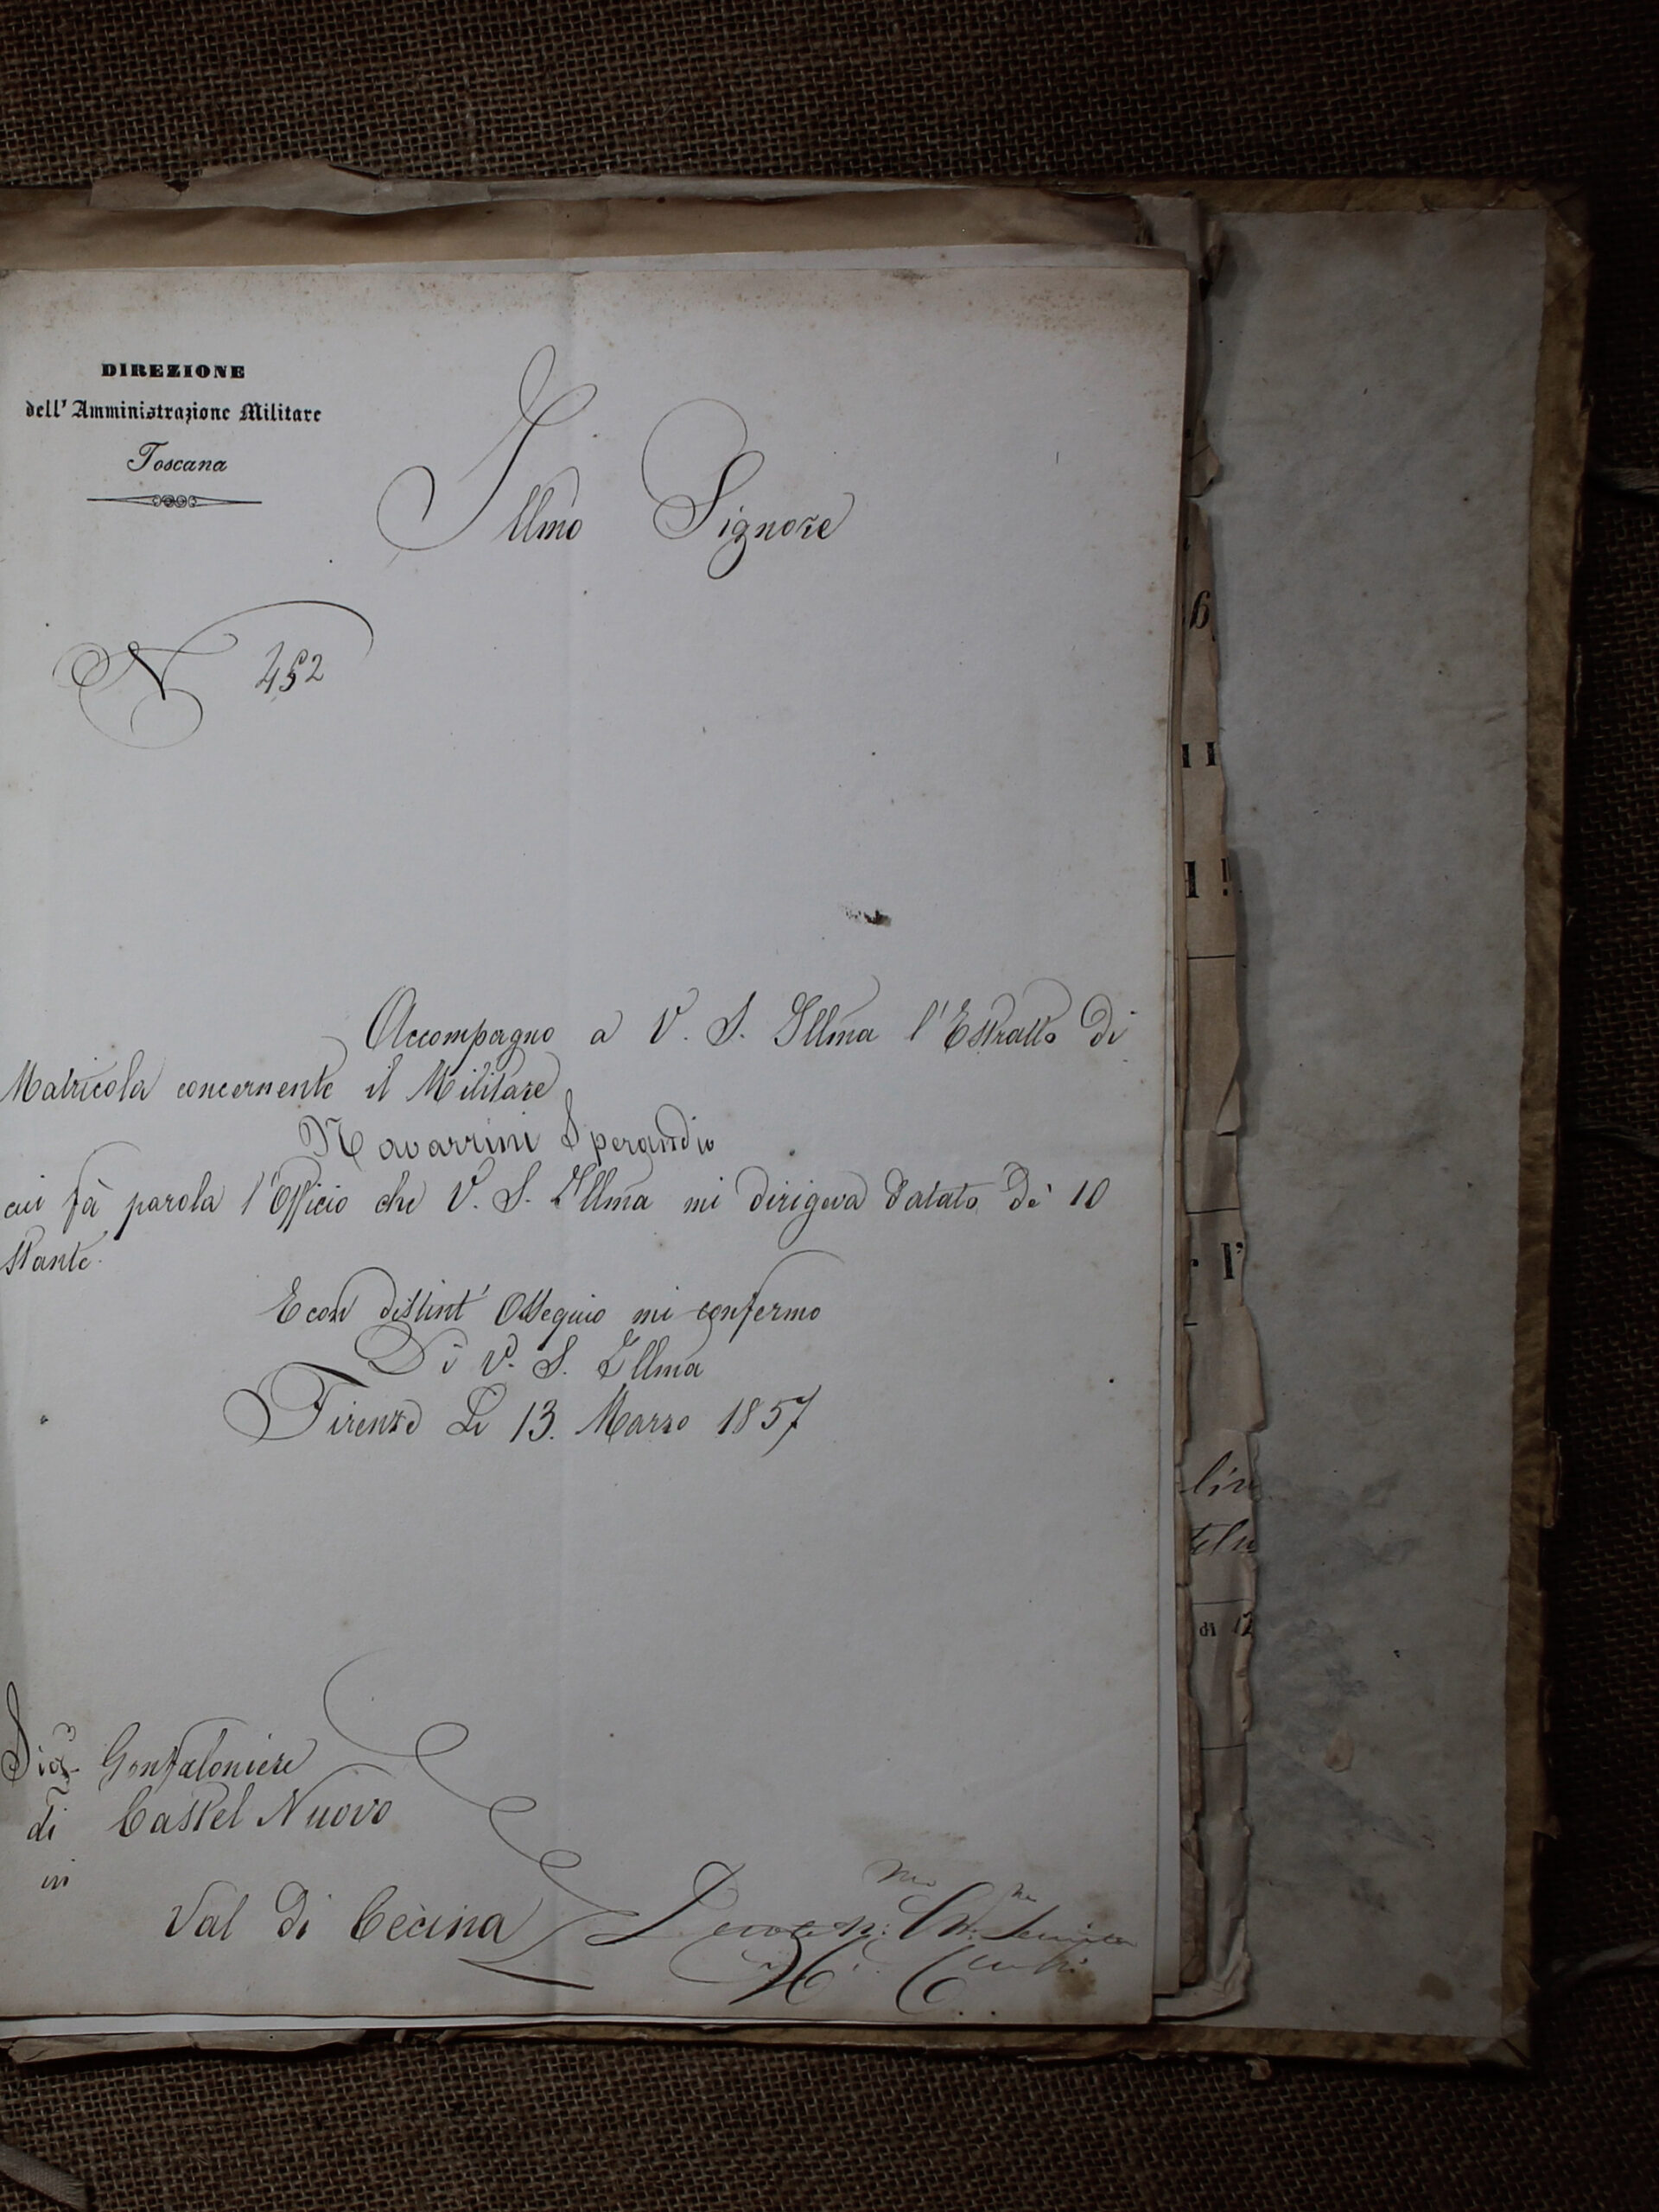 DIREZIONE
dell' Amministrazione Militare
Toscana
Illmo Signore
N 452
Accompagno a V. S. Illma l'Estratto di
Matricola concernente il Militare
Navarrini Sperandio
cui fà parola l'Officio che V. S. Illma mi dirigeva datato de' 10
stante.
E con distint' Ossequio mi confermo
Di V. S. Illma
Firenze Li 13. Marzo 1857
Sigr Gonfaloniere
di Castel Nuovo
in
Val di Cecina
6
II
I!
l'
di